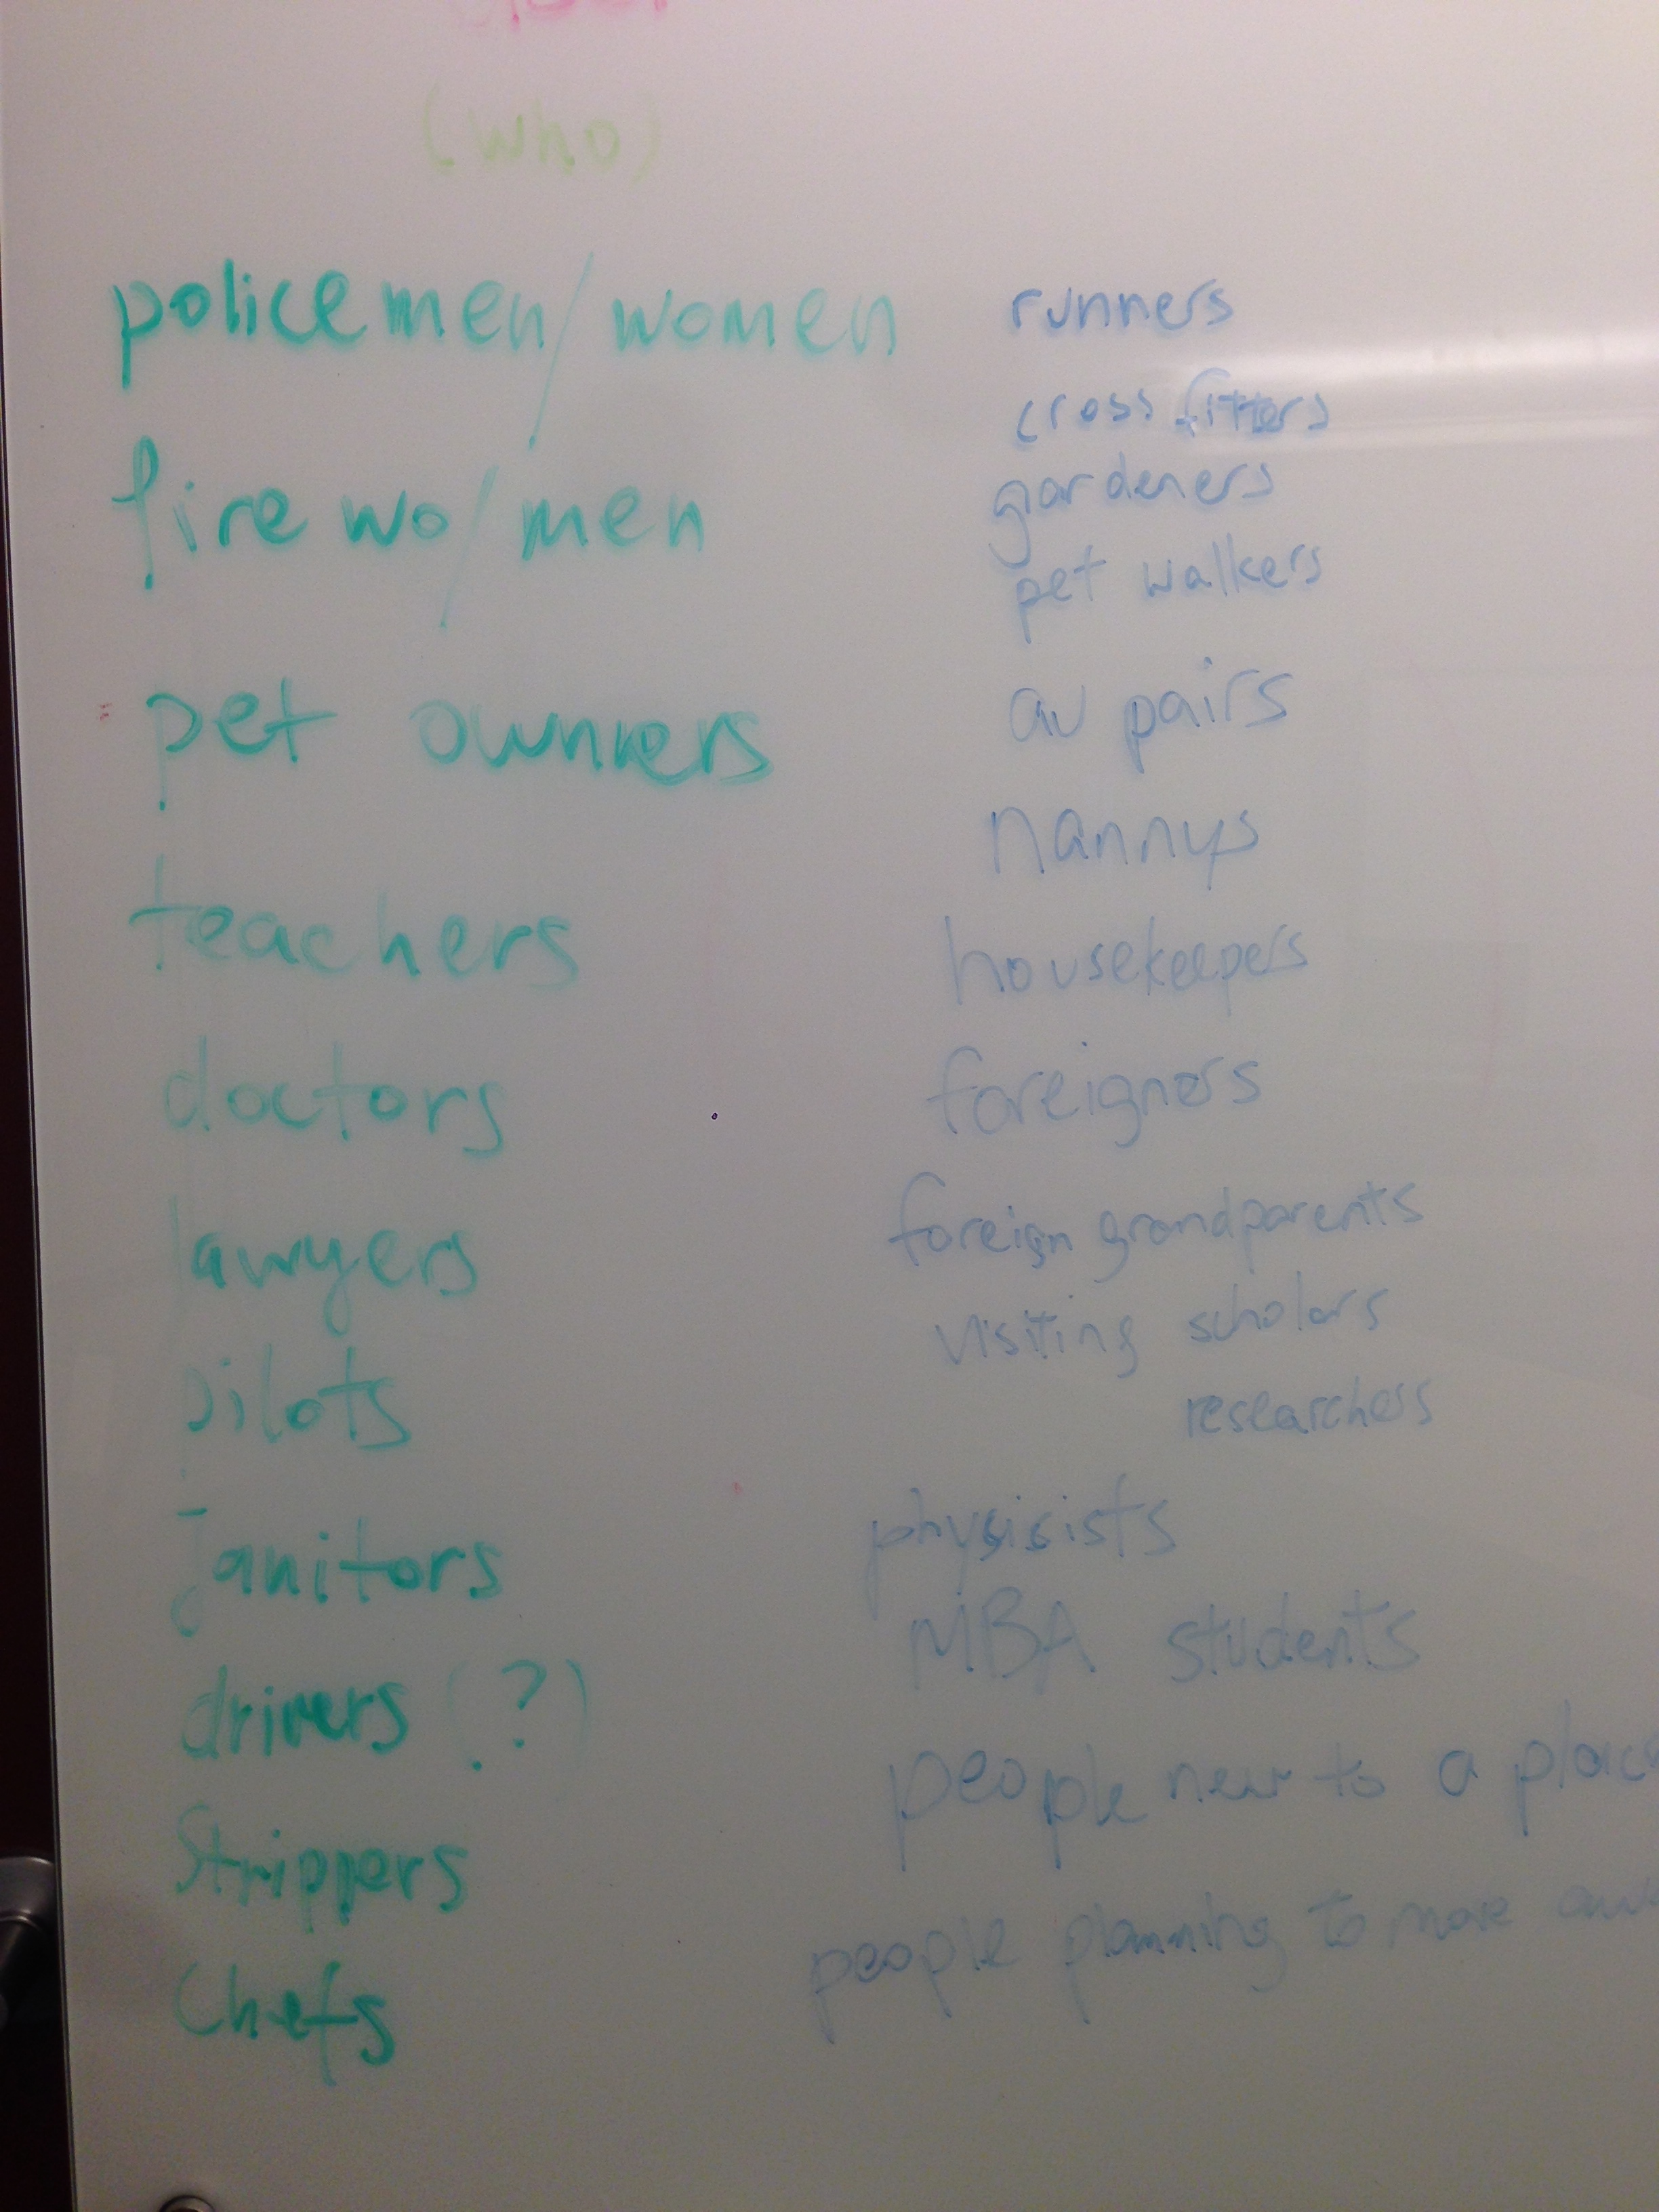 (who)
policemen/women
fire wo/men
pet owners
teachers
doctors
lawyers
pilots
Janitors
drivers (?)
Strippers
Chefs
runners
cross fitters
gardeners
pet walkers
au pairs
nannys
housekeepers
foreigners
foreign grandparents
visiting scholars
researchers
physisists
MBA students
people new to a place
people planning to move